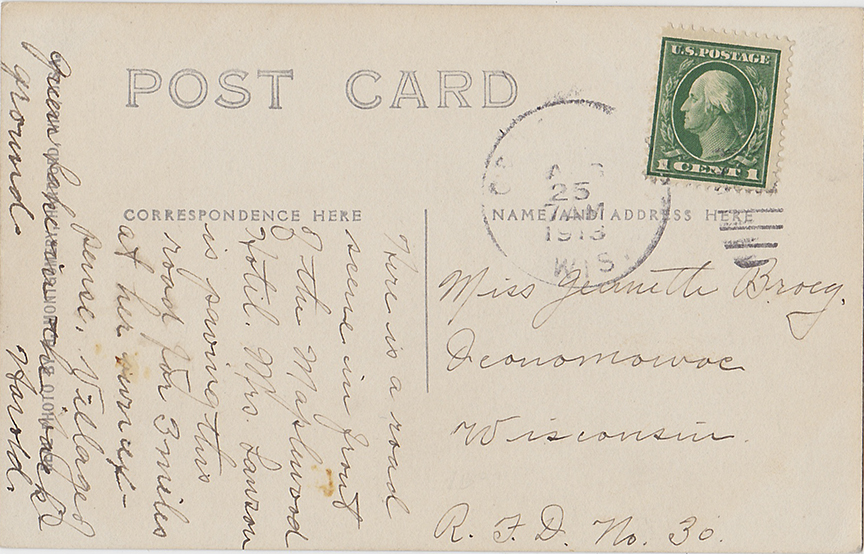 U.S. POSTAGE
1 CENT 1
POST CARD
25
7 AM
1913
WIS.
CORRESPONDENCE HERE
NAME AND ADDRESS HERE
Here is a road
scene in front
of the Maplewood
Hotel. Mrs. Lawson
is paving this
road for 3 miles
at her own ex-
pense. Village of
Green Lake in the back
ground.
Harold.
Miss Jeanette Broey.
Oconomowoc
Wisconsin.
R. F. D. No. 30.